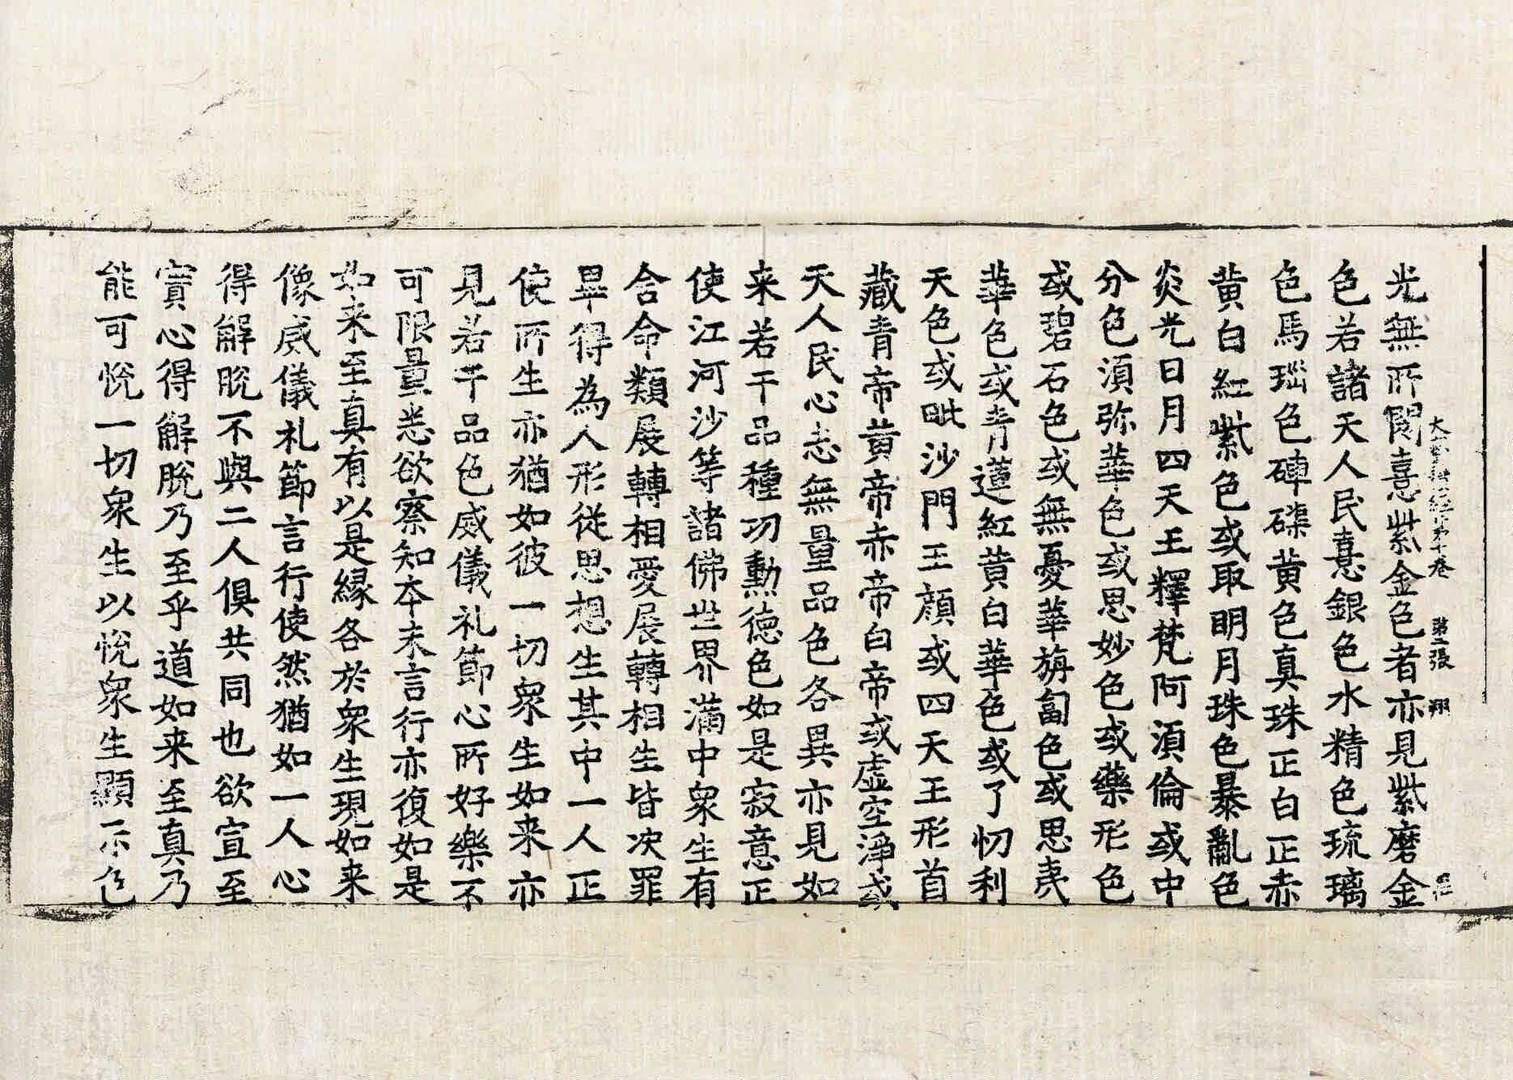 光無所閡憙紫金色者亦見紫磨金
大寶積經第十卷 第二張 翔
色若諸天人民憙銀色水精色琉璃
色馬瑙色硨磲黃色真珠正白正赤
黃白紅紫色或取明月珠色暴亂色
炎光日月四天王釋梵阿須倫或中
分色須弥華色或思妙色或藥形色
或碧石色或無憂華旃匐色或思夷
華色或青蓮紅黃白華色或了忉利
天色或毗沙門王顔或四天王形首
藏青帝黃帝赤帝白帝或虛空淨或
天人民心志無量品色各異亦見如
来若干品種功勳德色如是寂意正
使江河沙等諸佛世界滿中衆生有
含命類展轉相愛展轉相生皆決罪
畢得為人形從思想生其中一人正
使所生亦猶如彼一切衆生如来亦
見若干品色威儀礼節心所好樂不
可限量悉欲察知本末言行亦復如是
如来至真有以是緣各於衆生現如来
像威儀礼節言行使然猶如一人心
得解脫不與二人俱共同也欲宣至
實心得解脫乃至乎道如来至真乃
能可悅一切衆生以悅衆生顯示色